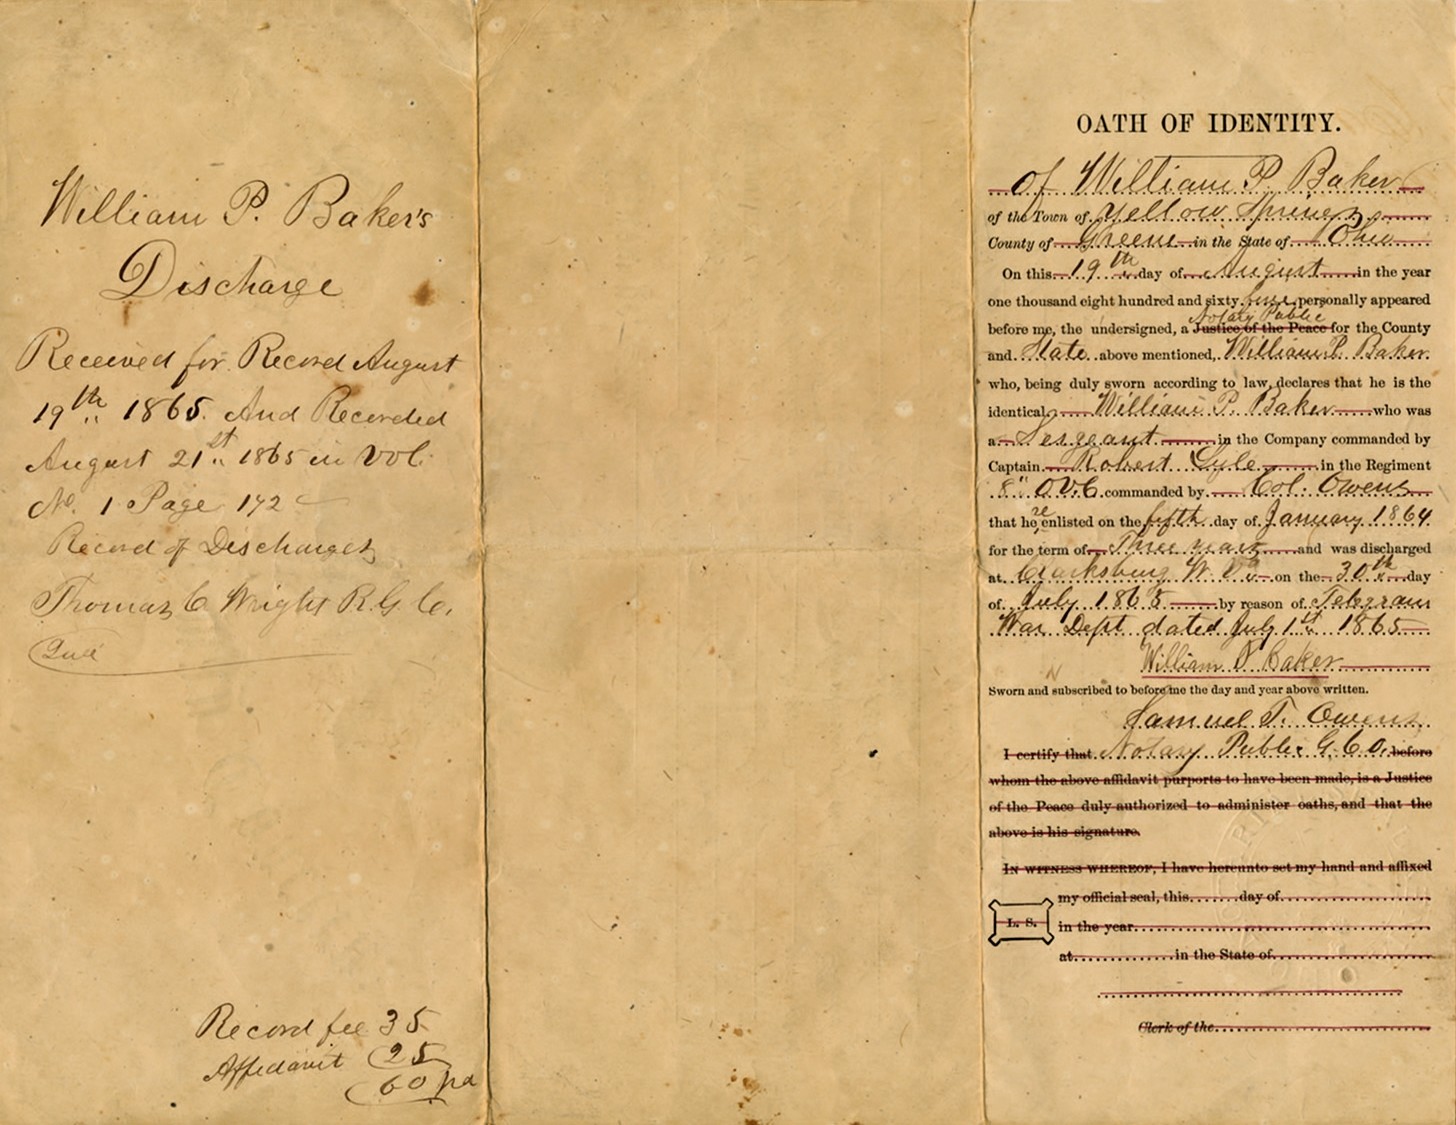 William P. Baker's
Discharge
Received for Record August
19th 1865. And Recorded
August 21st 1865 in Vol.
No. 1 Page 142
Record of Discharges
Thomas C Wright R.G.Co.
Record fee 35
Affidavit 25
60 pd
OATH OF IDENTITY.
of William P. Baker
of the Town of Yellow Springs
County of Greene in the State of Ohio
On this 19th day of August in the year
one thousand eight hundred and sixty five personally appeared
Notary Public
before me, the undersigned, a Justice of the Peace for the County
and State above mentioned, William P. Baker
who, being duly sworn according to law, declares that he is the
identical William P. Baker who was
a Sergeant in the Company commanded by
Captain Robert Lyle in the Regiment
8" OVC commanded by Col. Owens
that he re enlisted on the fifth day of January 1864
for the term of Three years and was discharged
at Clarksburg W. Va on the 30th day
of July 1865 by reason of Telegram
War Dept dated July 1st 1865
William P Baker
Sworn and subscribed to before me the day and year above written.
Samuel T. Owens
I certify that Notary Public G. Co. before
whom the above affidavit purports to have been made, is a Justice
of the Peace duly authorized to administer oaths, and that the
above is his signature.
IN WITNESS WHEREOF, I have hereunto set my hand and affixed
my official seal, this.......day of
L. S.
in the year
at............in the State of
Clerk of the